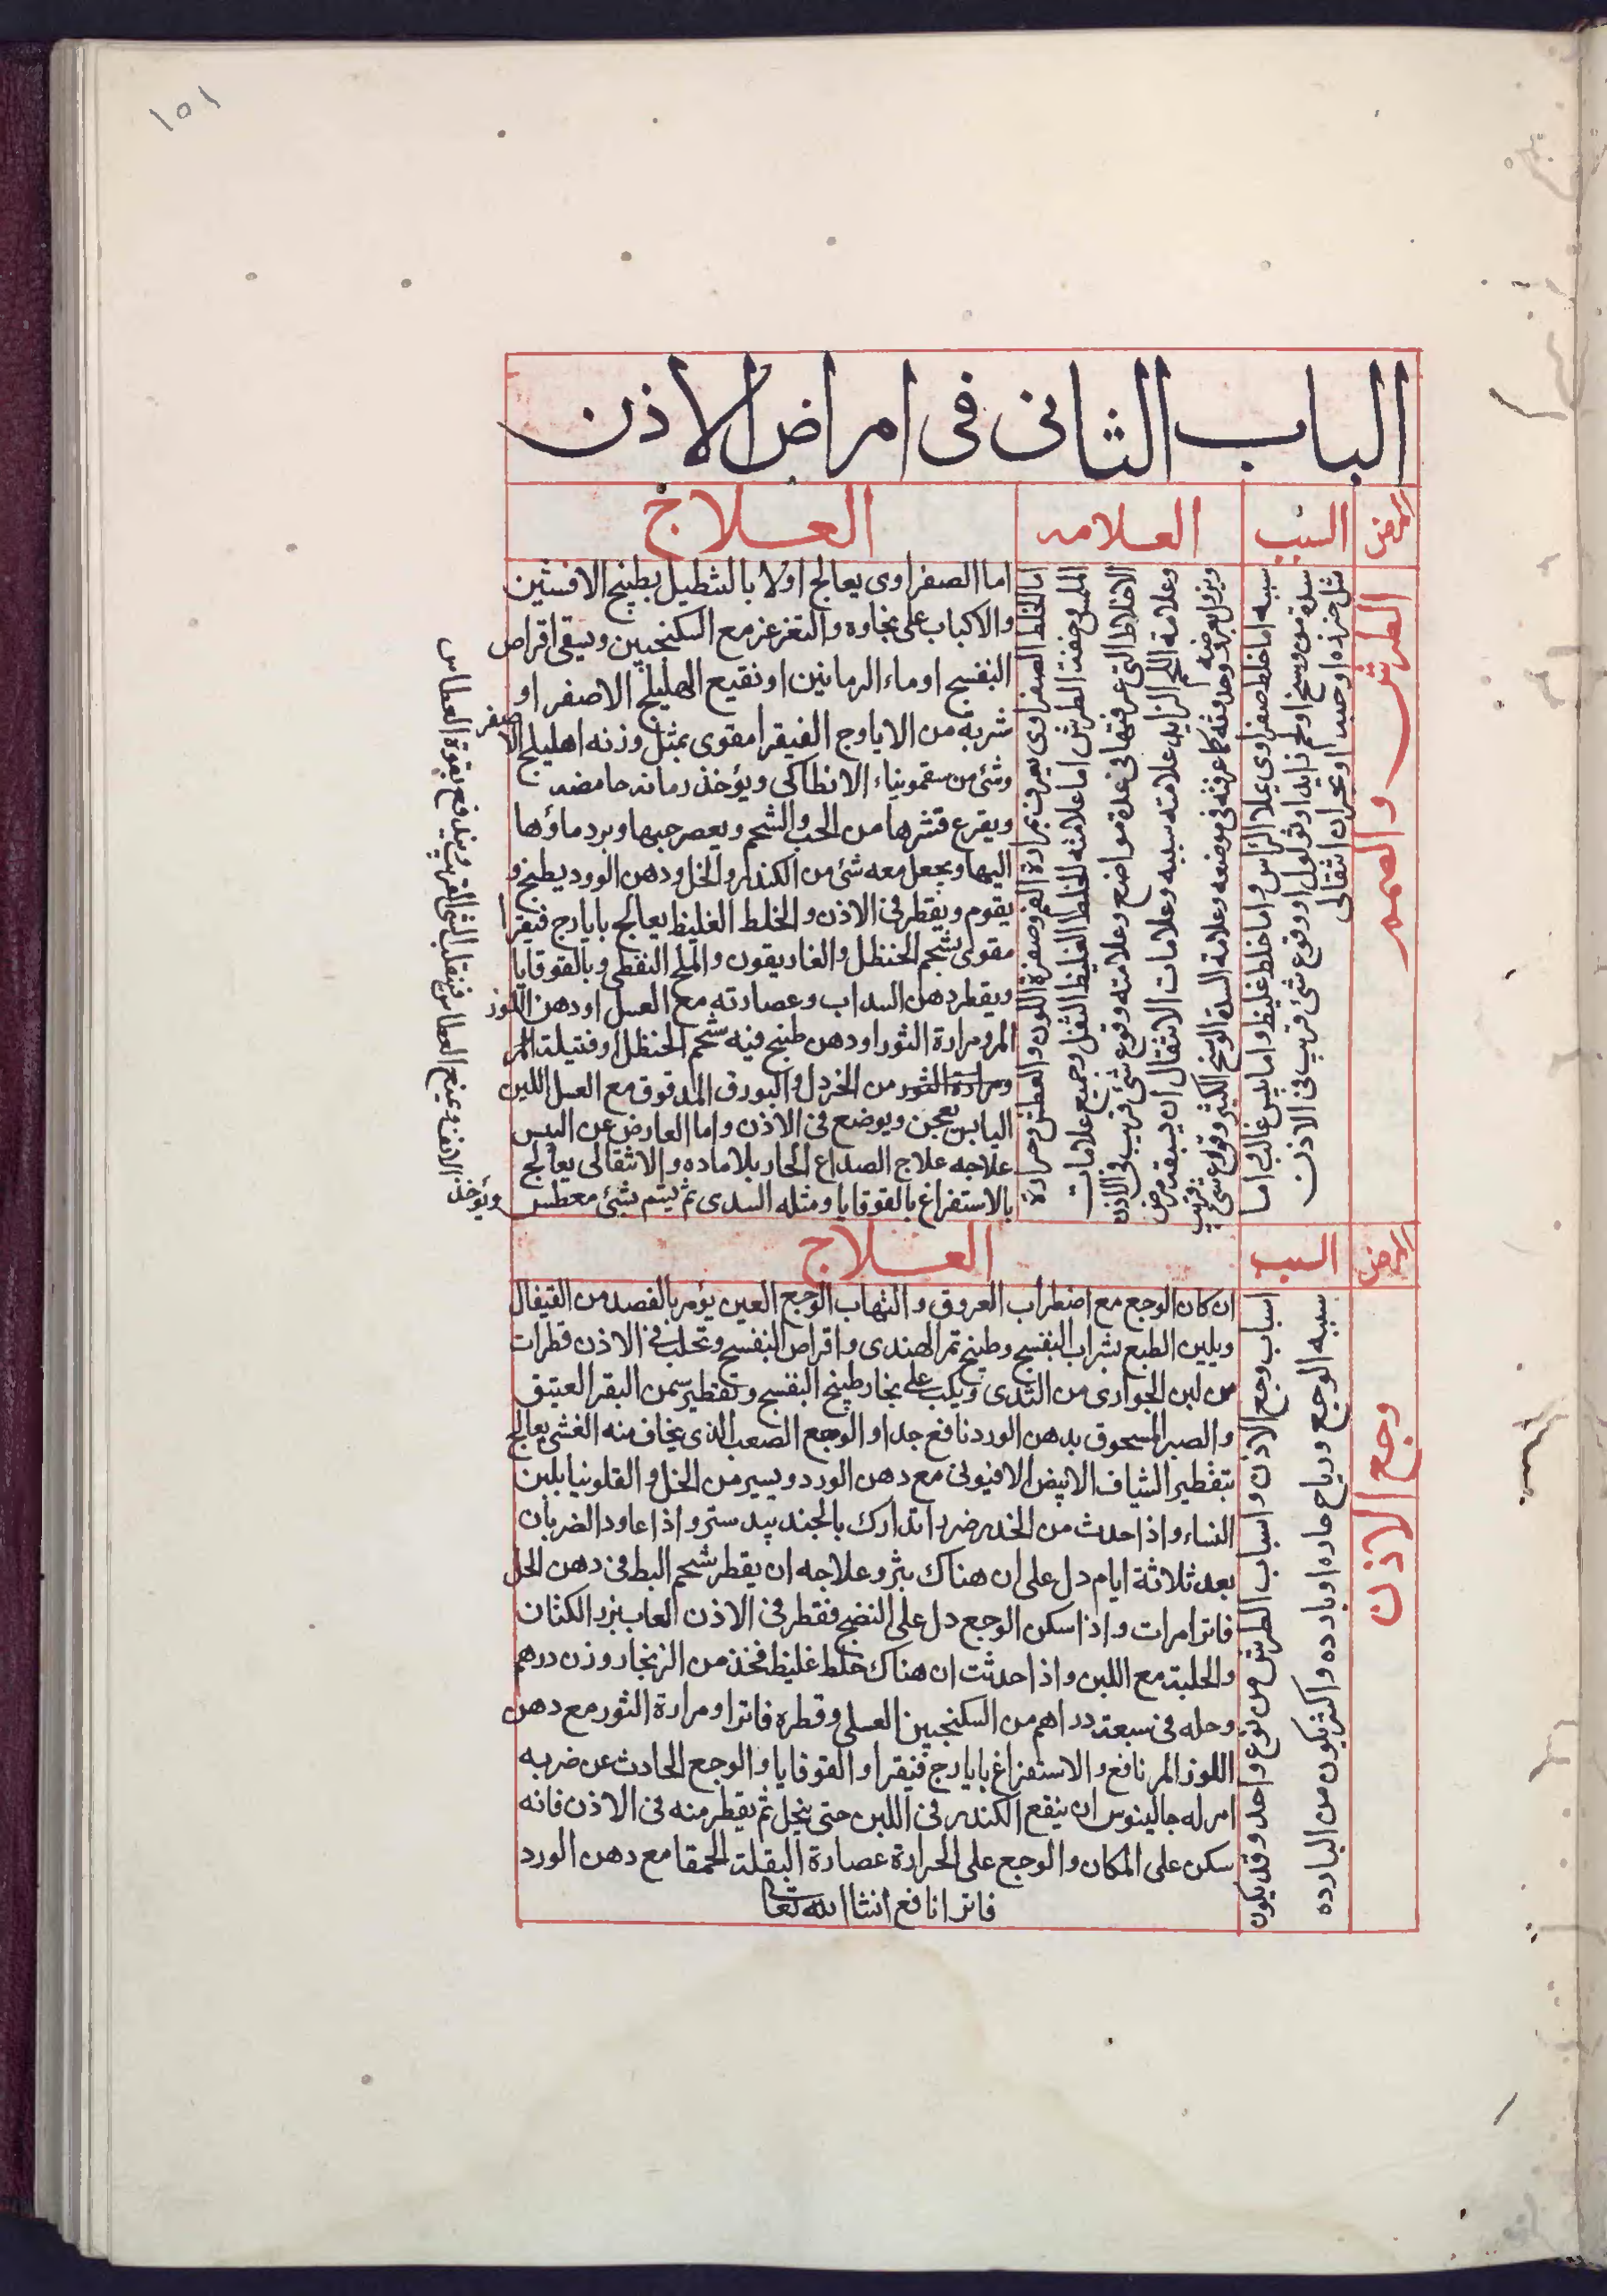 ١٥١
الباب الثانى فى امراض الاذن
المرض
السبب
العلامه
العلاج
الطرش والصمم
سببه اما خلط صفراوى علا الراس واما خلط غليظ واما يبس غالب اما
سدة من وسخ او لحم زايد او ثولول او وقوع شئ غريب فى الاذن
مثل خرزه او حصا او بحران انتقالى
اما الخلط الصفراوى يعرف بمرارة الفم وصفرة اللون والعطش وحرارة
الملمس وخفة الطرش اما علامته الخلط الغليظ الثقل وجميع علامات
الاخلاط التى عرفتها فى عدة مواضع وعلامته وقوع شئ غريب فى الاذن
وعلامة اللحم الزايد علامته سببه وعلامات الانتقال ان يسبقه مرض
ويزول بعرضه وحدوثه كما عرفته فى موضعه وعلامة السدة الوسخ الكثير وقوع شئ غريب
اما الصفراوى يعالج اولا بالتنطيل بطبيخ الافسنتين
والاكباب على بخاره والتغرغر مع السكنجبين ويسقى اقراص
البنفسج او ماء الرمانين او نقيع الهليلج الاصفر او
شربة من الاياوج الفيقرا مقوى بمثل وزنه اهليلج الاصفر
وشئ من سقمونياء الانطاكى ويؤخذ رمانه حامضه
ويقرع قشرها من الحب والشحم ويعصر حبها ويرد ماؤها
اليها ويجعل معه شئ من الكندر والخل ودهن الورد يطبخ و
يقوم ويقطر فى الاذن والخلط الغليظ يعالج بايارج فيقرا
مقوى بشحم الحنظل والغاريقون والملح النفطى وبالقوقايا
ويقطر دهن السداب وعصارته مع العسل او دهن اللوز
المر ومرارة الثور او دهن طبخ فيه شحم الحنظل او فتيلة المر
ومرارة الثور من الخردل والبورق المدقوق مع العسل اللين
اليابس يعجن ويوضع فى الاذن واما العارض عن اليبس
علاجه علاج الصداع الحار بلا ماده والانتقالى يعالج
بالاستفراغ بالقوقايا ومثله السدى ثم يشم بشئ معطس
ويؤخذ الانف ويمنع العطاس فينقلب الشئ الغريب ويندفع بقوة العطاس
المرض
السبب
العلاج
وجع الاذن
اسباب وجع الاذن واسباب الطرش من نوع واحد وقد يكون
سببه الوجع ورياح حاره او بارده واكثر يكون من البارده
ان كان الوجع مع اضطراب العروق والتهاب الوجع العين يؤمر بالفصد من القيفال
ويلين الطبع بشراب البنفسج وطبيخ تمر الهندى واقراص البنفسج وتحلب فى الاذن قطرات
من لبن الجوارى من الثدى ويكب على بخار طبيخ البنفسج وتقطير سمن البقر العتيق
والصبر المسحوق بدهن الورد نافع جدا والوجع الصعب الذى يخاف منه الغشى يعالج
بتقطير الشياف الابيض الافيونى مع دهن الورد ويسير من الخل والقلونيا بلبن
النساء واذا حدث من الخدر ضررا تدارك بالجند بيدستر واذا عاود الضربان
بعد ثلاثة ايام دل على ان هناك بثر وعلاجه ان يقطر شحم البط فى دهن الحل
فاترا مرات واذا سكن الوجع دل على النضج فقطر فى الاذن لعاب بزر الكتان
والحلبة مع اللبن واذا حدثت ان هناك خلط غليظ فخذ من الزنجار وزن درهم
وحله فى سبعة دراهم من السكنجبين العسلى وقطره فاترا ومرارة الثور مع دهن
اللوز المر نافع والاستفراغ بايارج فيقرا والقوقايا والوجع الحادث عن ضربه
امر له جالينوس ان ينقع الكندر فى اللبن حتى ينحل ثم يقطر منه فى الاذن فانه
سكن على المكان والوجع على الحرارة عصارة البقلة الحمقا مع دهن الورد
فاترا نافع انشا الله تعالى